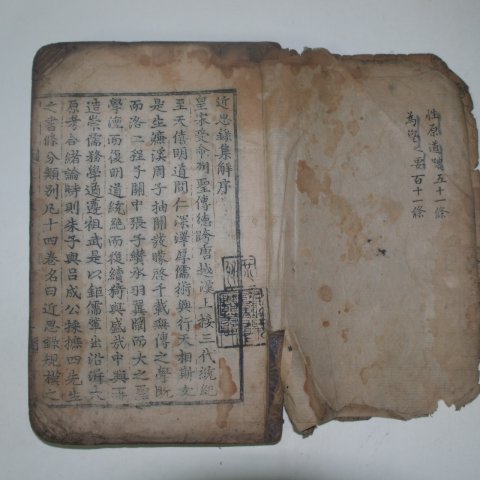 性原道體五十一條
為學之要百十一條
近思錄集解序
皇家受命列聖傳德跨唐越漢上接三代統紀
至天僖明道間仁深澤厚儒術興行天相斯文
是生濂溪周子抽關發矇啓千載無傳之學既
而洛二程子關中張子纘承羽翼闡而大之聖
學湮而復明道統絶而復續猗與盛哉中興再
造崇儒務學遹遵祖武是以鉅儒輩出沿泝大
原考合緒論時則朱子與呂成公採摭四先生
之書條分類別凡十四卷名曰近思錄規模之